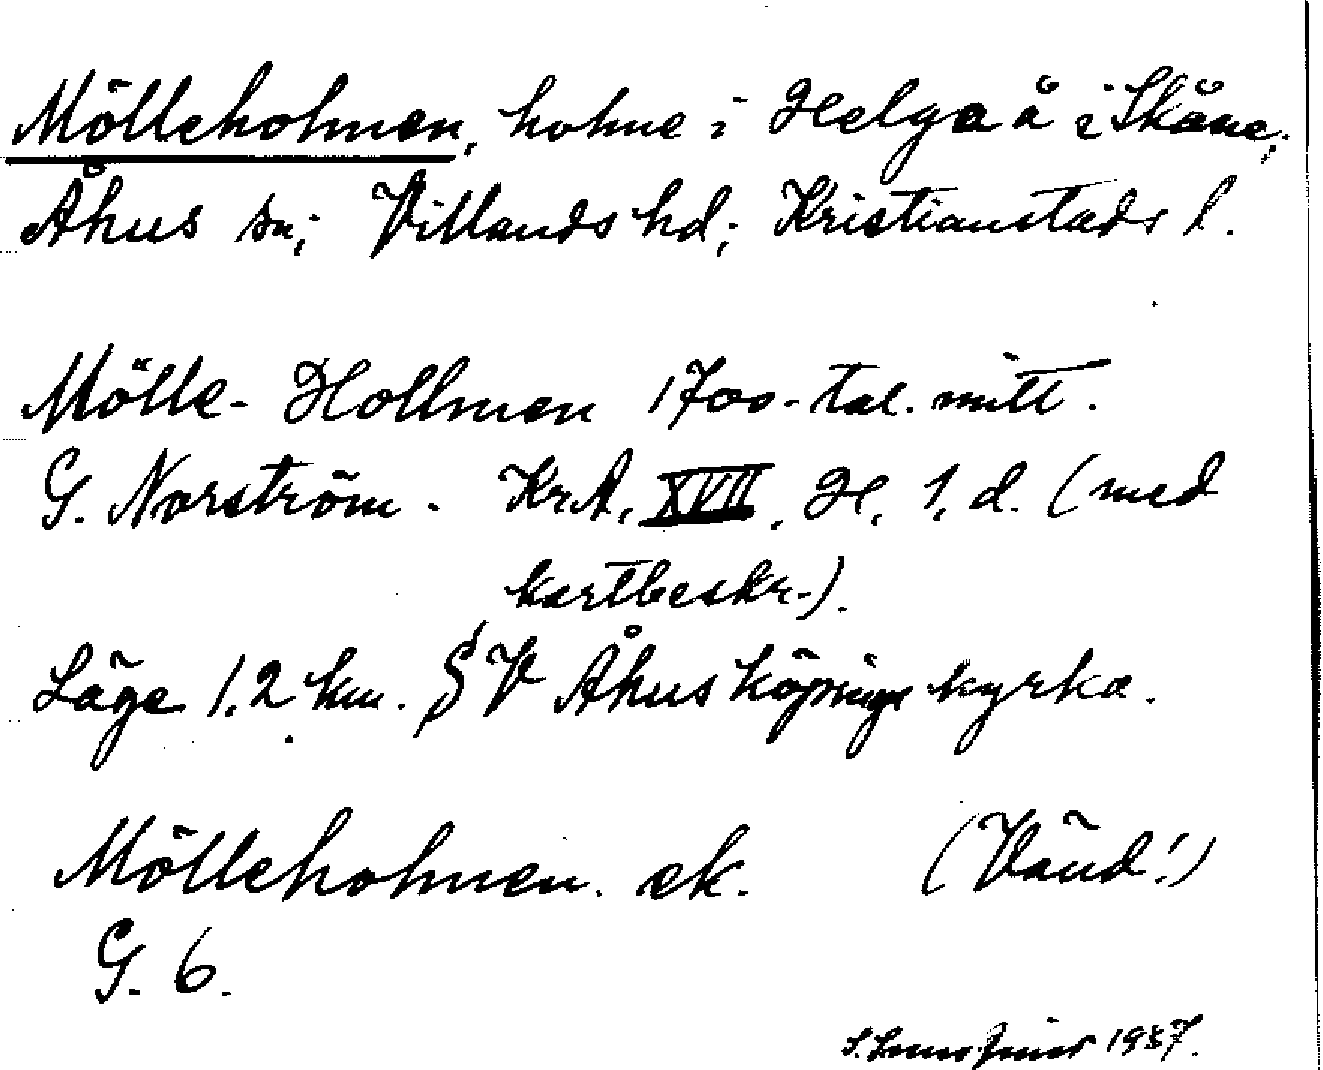 Mölleholmen, holme i Helgeå i Skåne;
Åhus sn; Villands hd; Kristianstads l.
Mölle-Hollmen 1700-tal. mitt.
G. Norström. KrA, XVII, H, 1, d. (med
kartbeskr.).
Läge 1,2 km. SV Åhus köpings kyrka.
Mölleholmen. ek. (Vänd!)
G. 6.
1937.